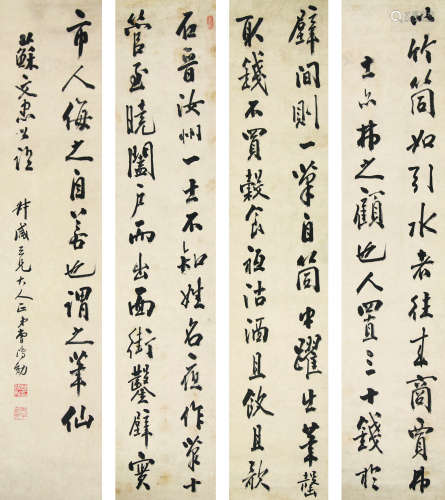 以竹筒如引水者往來商賈
士亦弗之顧也人置三十錢於
壁間則一筆自筒中躍出筆罄
取錢不買穀食祇沽酒且飲且歌
石晉汝州一士不知姓名夜作筆十
管至曉闔戶而出面街鑿壁實
市人侮之自若也謂之筆仙
蘇文忠公語
三兄大人正 弟曹鴻勛